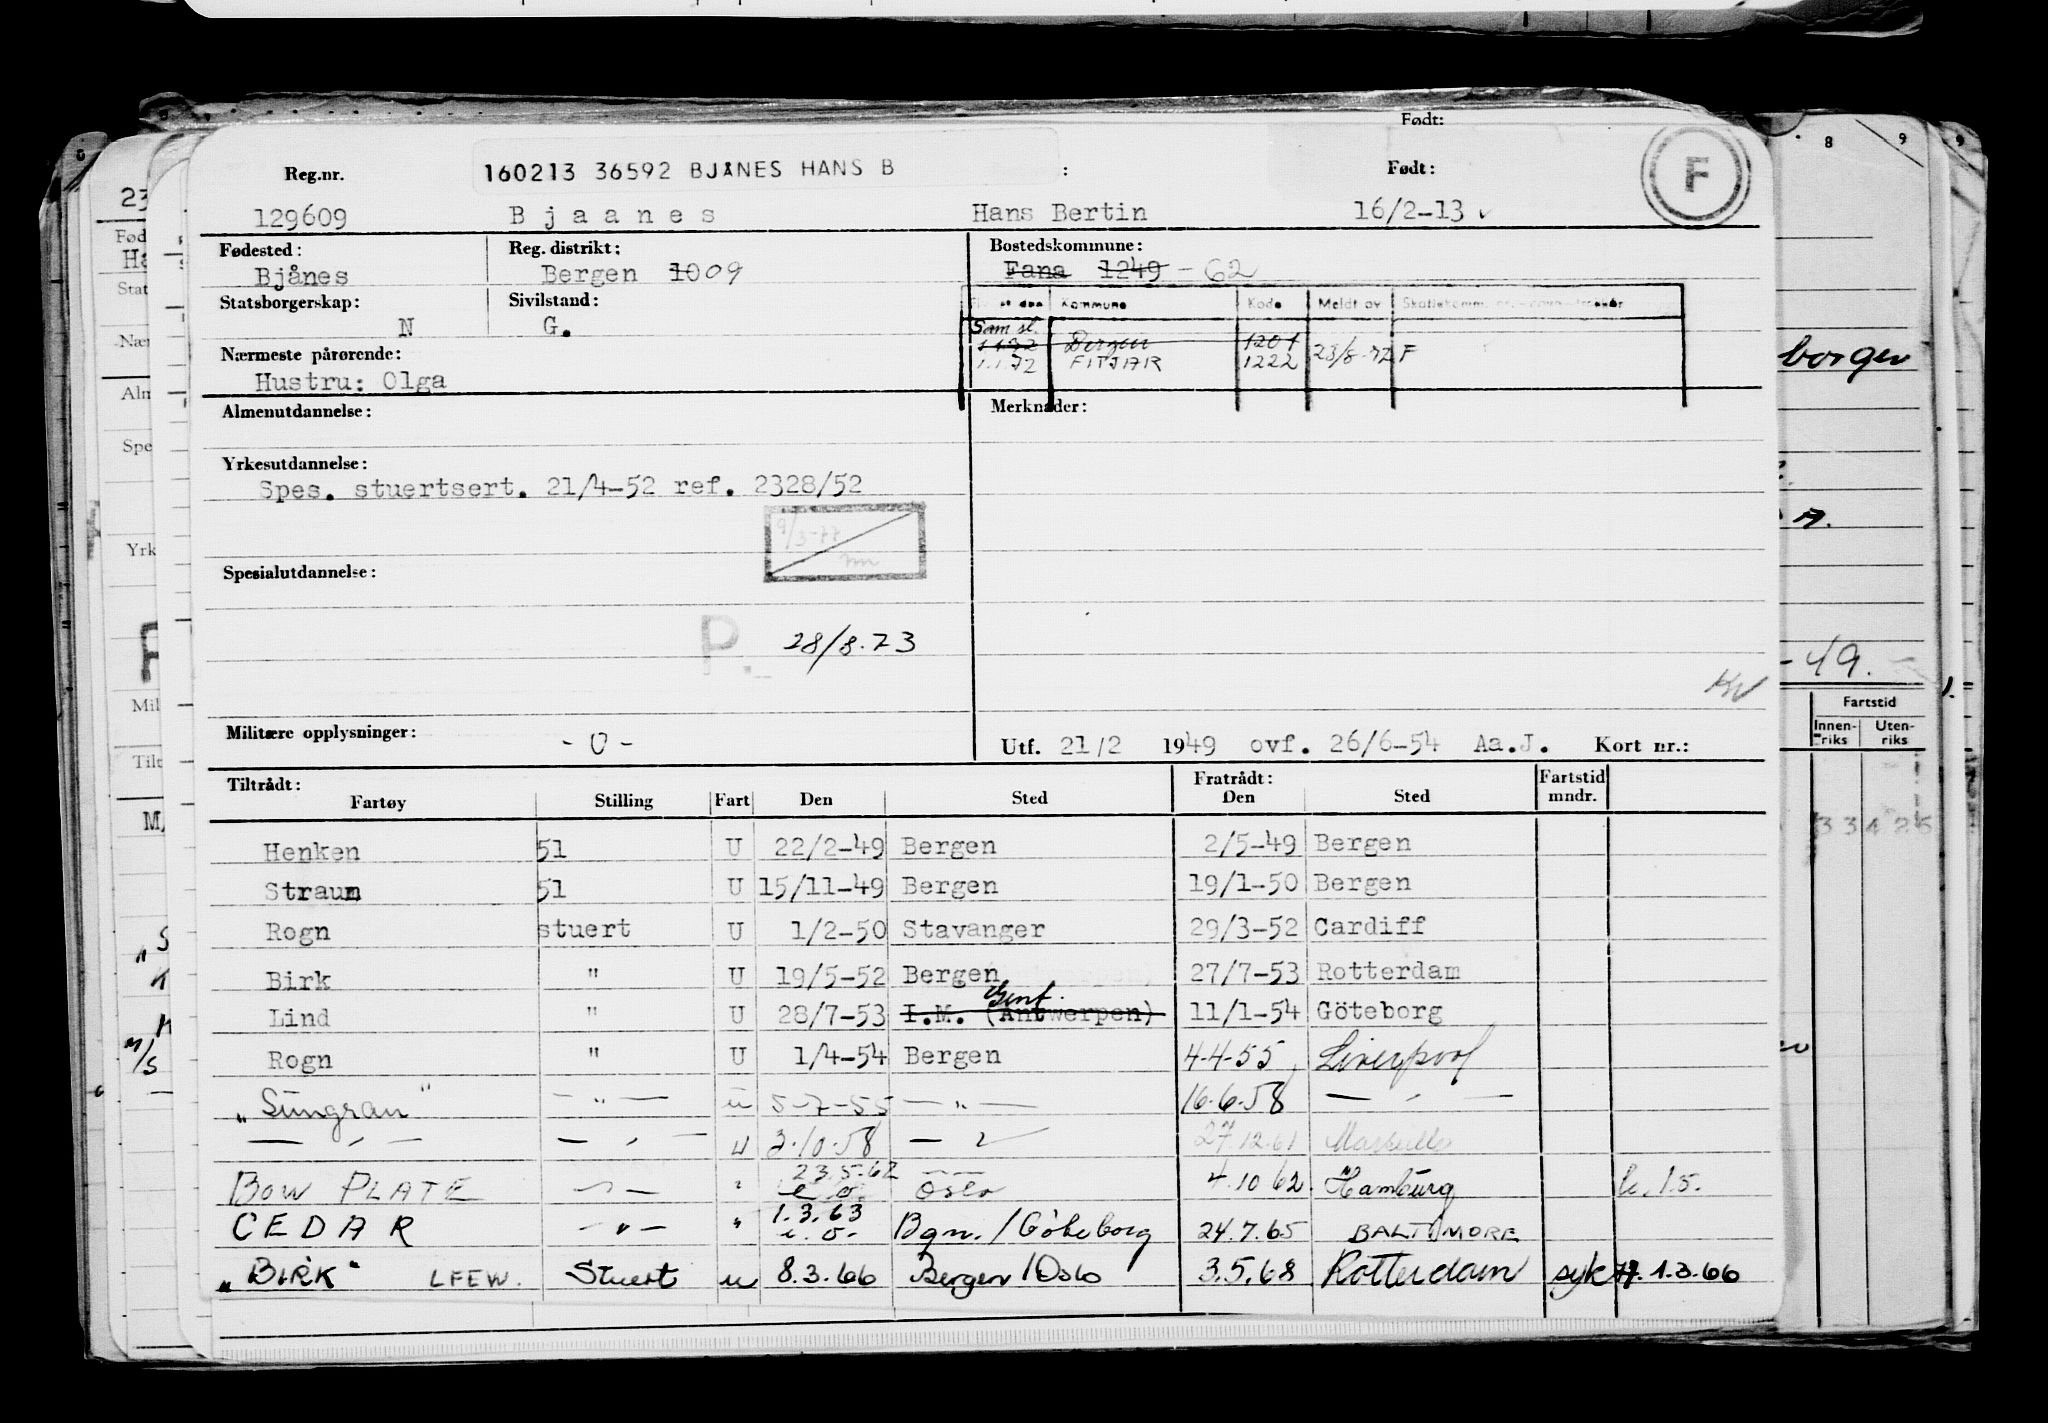 Født:
Reg.nr. 160213 36592 BJÅNES HANS B : Født: F
129609 Bjaanes Hans Bertin 16/2-13
Fødested: Reg. distrikt: Bostedskommune:
Bjånes Bergen 10 09 Fana 1249 - 62
Statsborgerskap: Sivilstand: Kommune Kode Meldt av
N G. Sam sl.
1.1.72 Bergen 1201
FITJAR 1222 23/8-72 F
Nærmeste pårørende:
Hustru: Olga
Almenutdannelse: Merknader:
Yrkesutdannelse:
Spes. stuertsert. 21/4-52 ref. 2328/52
9/3-77
Spesialutdannelse:
P. 28/8.73
Militære opplysninger: - 0 - Utf. 21/2 1949 ovf. 26/6-54 Aa.J. Kort nr.:
Tiltrådt: Fratrådt: Fartstid
Fartøy Stilling Fart Den Sted Den Sted mndr.
Henken 51 U 22/2-49 Bergen 2/5-49 Bergen
Straum 51 U 15/11-49 Bergen 19/1-50 Bergen
Rogn stuert U 1/2-50 Stavanger 29/3-52 Cardiff
Birk " U 19/5-52 Bergen 27/7-53 Rotterdam
Gent.
Lind " U 28/7-53 I.M. (Antwerpen) 11/1-54 Göteborg
Rogn " U 1/4-54 Bergen 4-4-55 Liverpool
"Sungran" — " — u 5-7-55 — " — 16.6.58 — " —
— " — — " — u 3.10.58 — " — 27.12.61
23.5.62
BOW PLATE — " — " Oslo 4.10.62. Hamburg
1.3.63
CEDAR — " — " Bgn./Göteborg 24.7.65 BALTIMORE
"BIRK" LFEW. Stuert u 8.3.66 Bergen/Oslo 3.5.68 Rotterdam syk 1.3.66
borger
A.
-49.
Fartstid
Innenriks Utenriks
33425
8 9